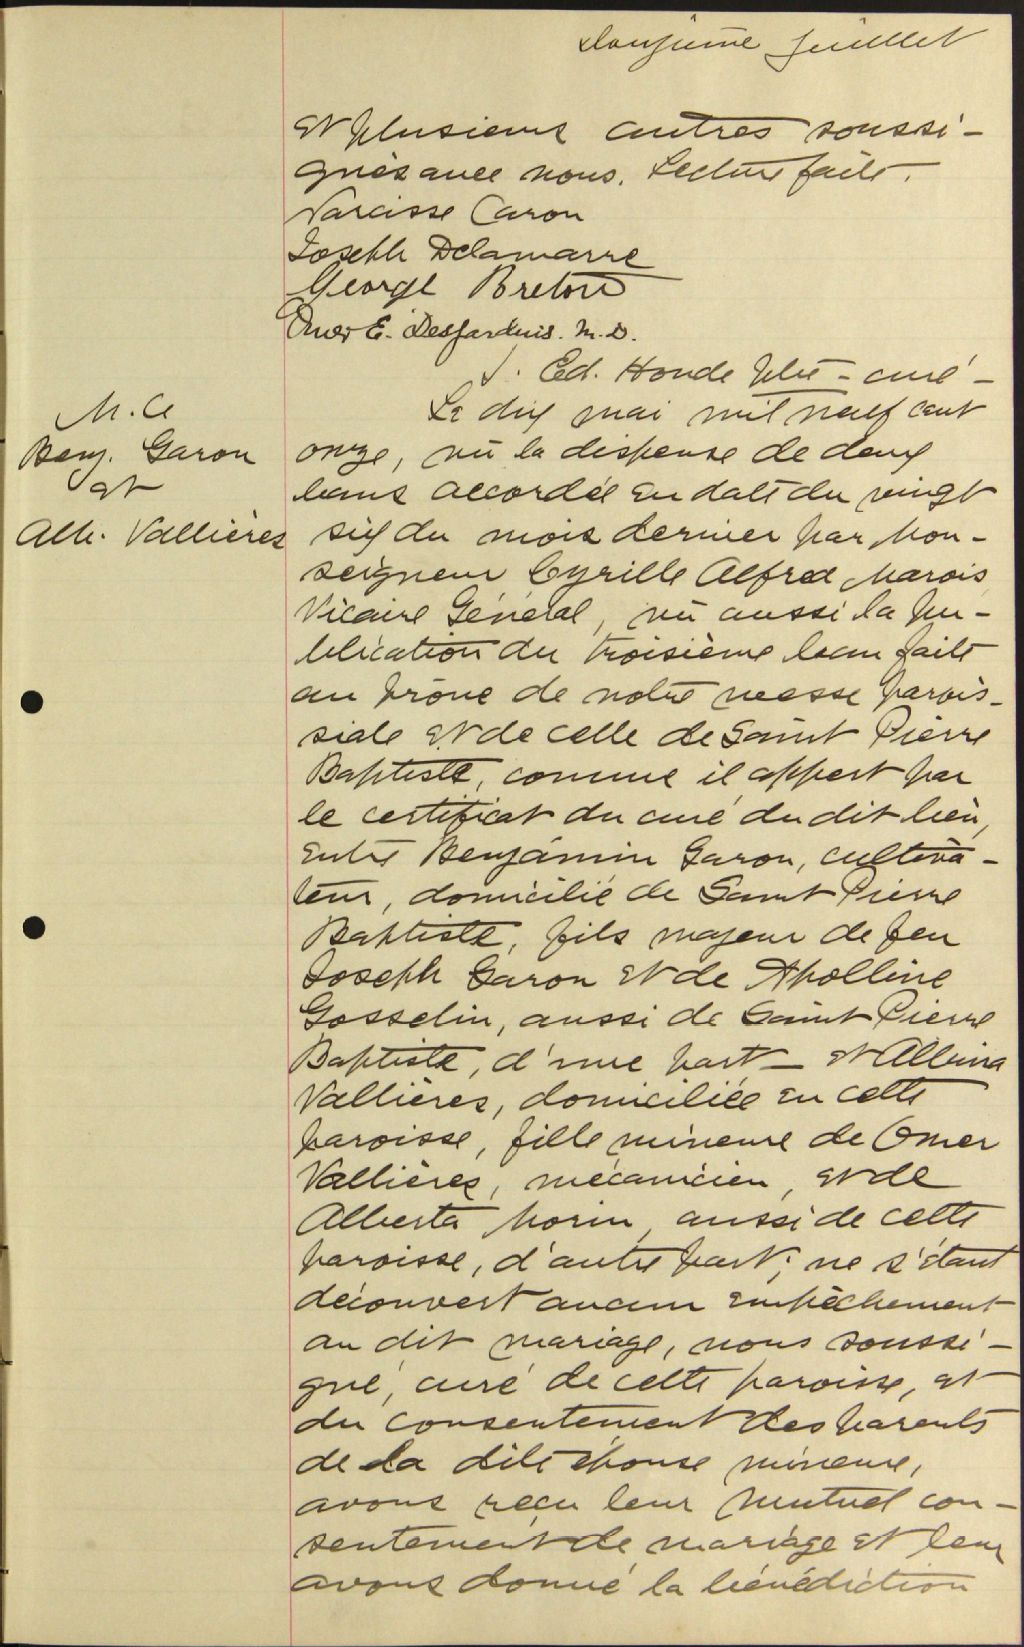 Douzième feuillet
et plusieurs autres soussi-
gnés avec nous. Lecture faite.
Narcisse Caron
Joseph Delamarre
George Breton
Omer E. Desjardins. M.D.
J. Ed. Houde ptre - curé -
M. 
Benj. Garon
et
Alb. Vallières
Le dix mai mil neuf cent
onze, vû la dispense de deux
bans accordée en date du vingt
six du mois dernier par Mon-
seigneur Cyrille Alfred Marois
Vicaire Général, vû aussi la pu-
blication du troisième ban faite
au prône de notre messe parois-
siale et de celle de Saint Pierre
Baptiste, comme il appert par
le certificat du curé du dit lieu,
entre Benjamin Garon, cultiva-
teur, domicilié de Saint Pierre
Baptiste, fils majeur de feu
Joseph Garon et de Apolline
Gosselin, aussi de Saint Pierre
Baptiste, d'une part - et Albina
Vallières, domiciliée en cette
paroisse, fille mineure de Omer
Vallières, mécanicien, et de
Alberta Morin, aussi de cette
paroisse, d'autre part; ne s'étant
découvert aucun empêchement
au dit mariage, nous soussi-
gné, curé de cette paroisse, et
du consentement des parents
de la dite épouse mineure,
avons reçu leur mutuel con-
sentement de mariage et leur
avons donné la bénédiction